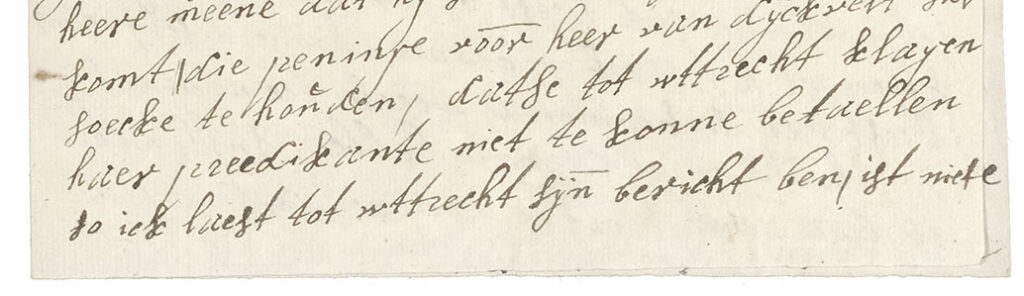 heere meene dat
komt, die peninge voor heer van dyckvelt
soecke te houden, datse tot wttrecht klagen
haer preedikante niet te konne betaellen
so ick laest tot wttrecht sijn bericht ben, ist niet